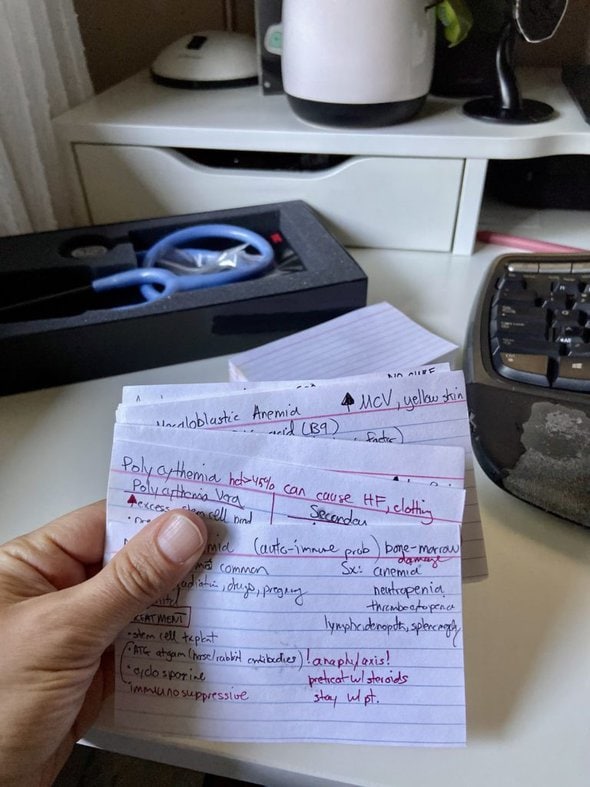 NO CURE
Megaloblastic Anemia ↑ MCV, yellow skin
acid (B9)
factor)
Polycythemia hct>45% can cause HF, clotting
Polycythemia Vera Secondary
↑ excess stem cell
(auto-immune prob) bone-marrow
damage
most common Sx: anemia
radiation, drugs, pregnancy neutropenia
thrombocytopenia
TREATMENT lymphadenopathy, splenomegaly
•stem cell txplant
•ATG atgam (horse/rabbit antibodies) !anaphylaxis!
•cyclosporine pretreat w/ steroids
immunosuppressive stay w/ pt.